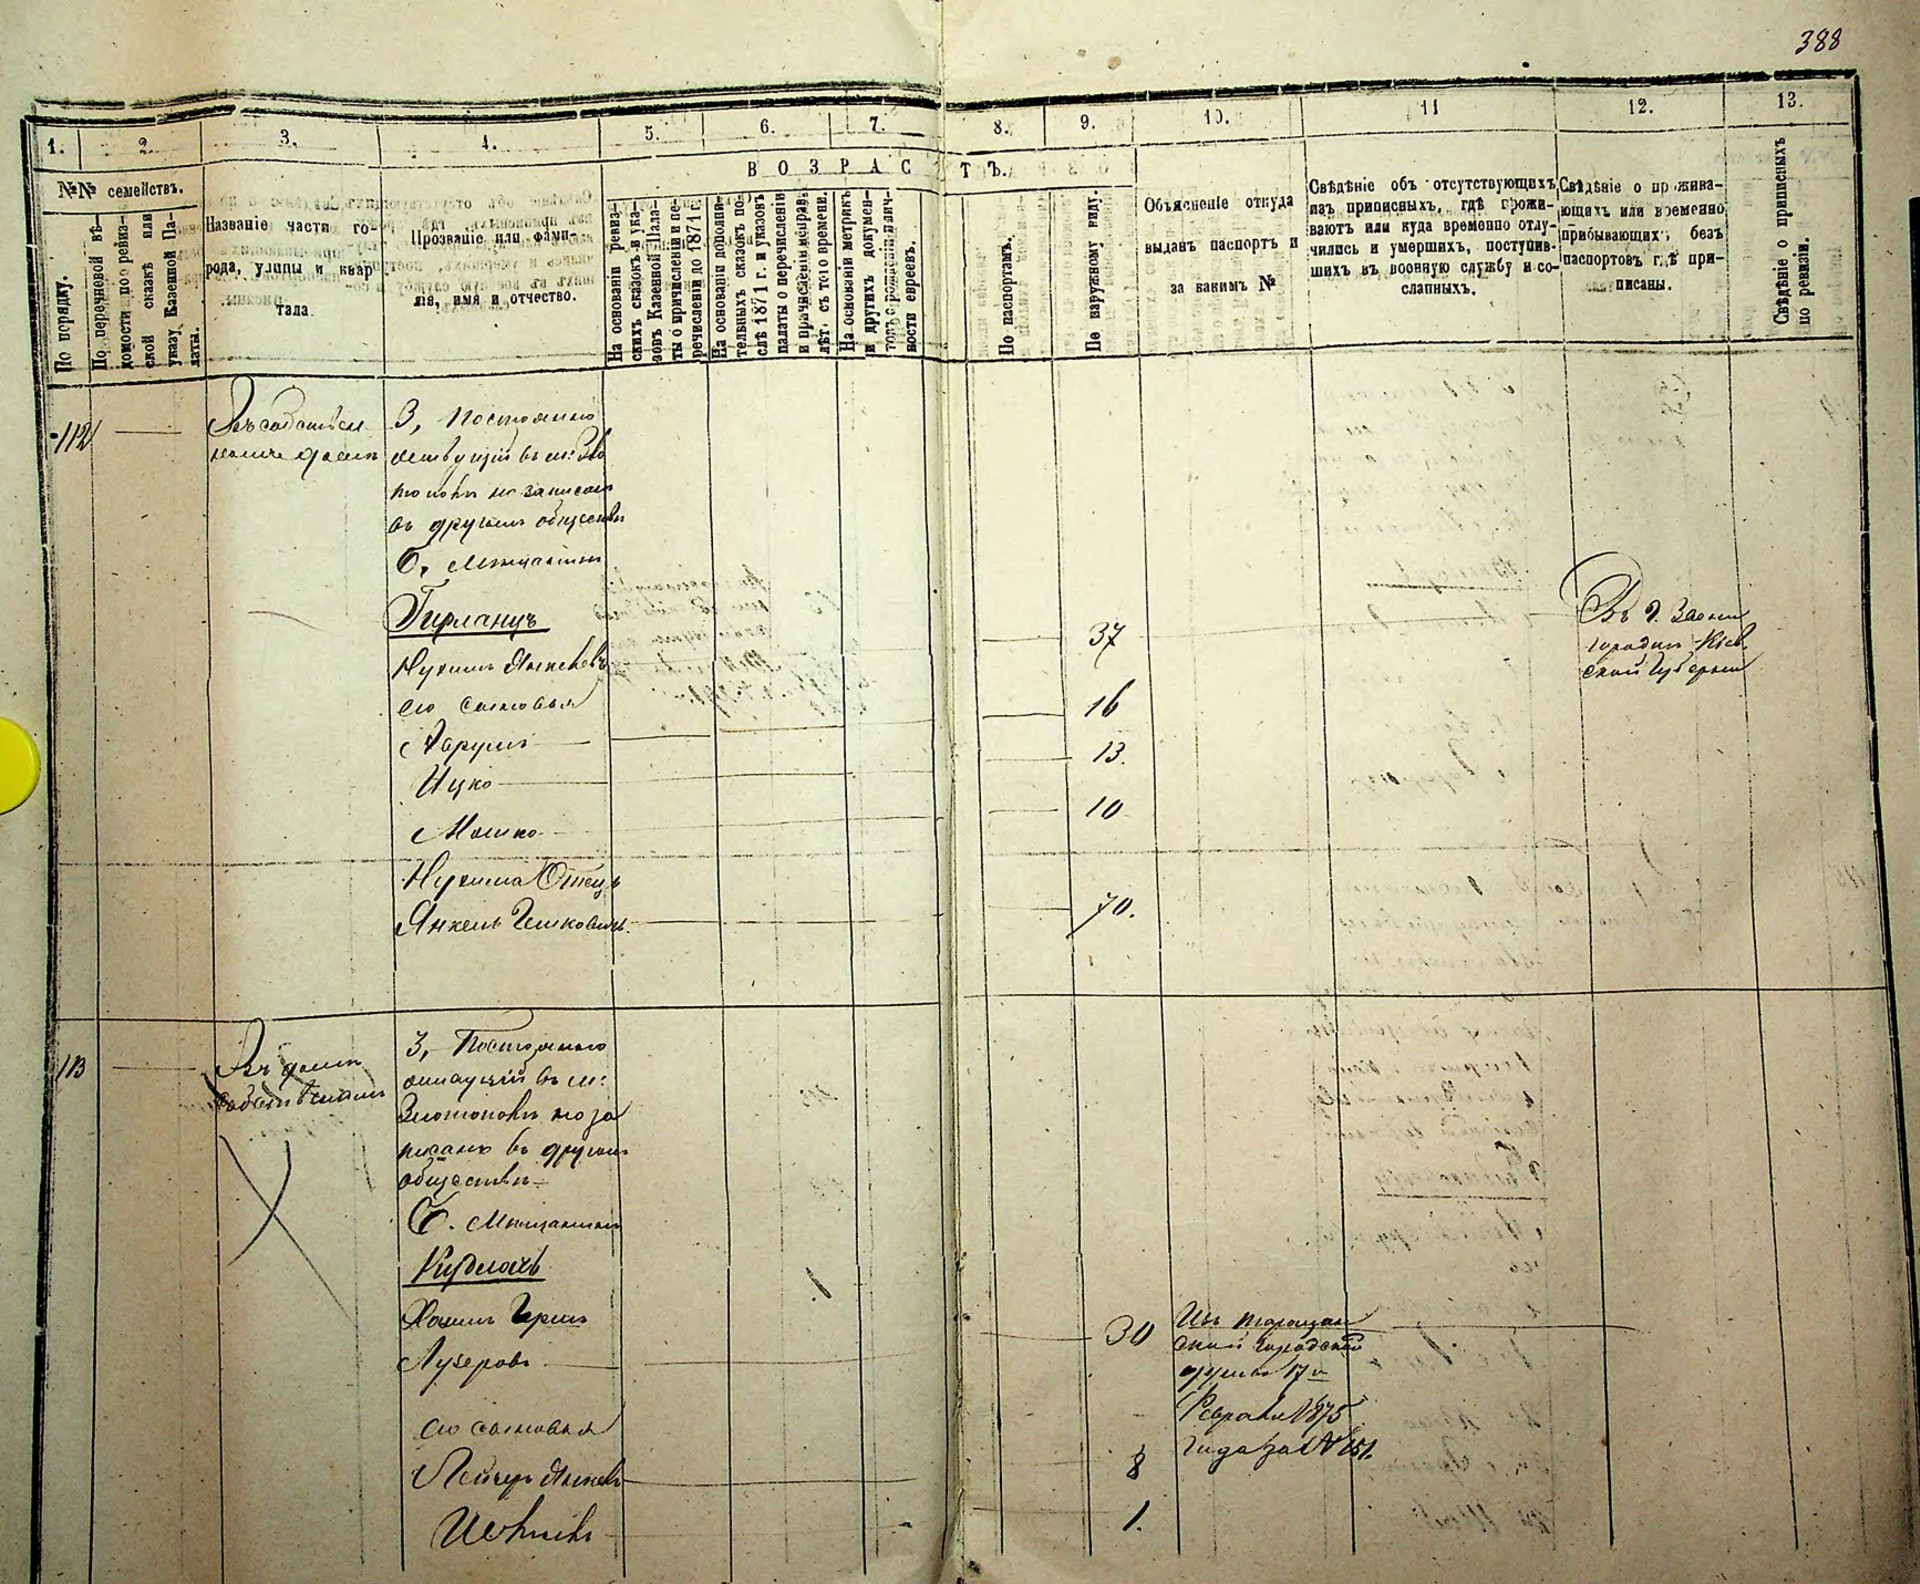 388
1.
2.
3.
4.
5.
6.
7.
8.
9.
10.
11
12.
13.
№№ семействъ.
По порядку.
По перечневой вѣ-
домости по ревиз-
ской сказкѣ или
указу Казенной Па-
латы.
Названіе части го-
рода, улицы и квар
тала.
Прозваніе или фами-
лія, имя и отчество.
ВОЗРАСТЪ.
На основаніи ревиз-
скихъ сказокъ и ука-
зовъ Казенной Пала-
ты о причисленіи и пе-
речисленіи до 1871 г.
На основаніи дополни-
тельныхъ сказокъ по-
слѣ 1871 г. и указовъ
палаты о перечисленіи
и причисленіи неправ.
лѣт. съ того времени.
На основаніи метрикъ
и другихъ докумен-
товъ о рожденіи лич-
ности евреевъ.
По паспортамъ.
По наружному виду.
Объясненіе откуда
выданъ паспортъ и
за какимъ №
Свѣдѣніе объ отсутствующихъ
изъ приписныхъ, гдѣ прожи-
ваютъ или куда временно отлу-
чились и умершихъ, поступив-
шихъ въ военную службу и со-
сланныхъ.
Свѣдѣніе о прожива-
ющихъ или временно
прибывающихъ, безъ
паспортовъ гдѣ при-
писаны.
Свѣдѣніе о приписныхъ
по ревизіи.
112
Въ собствен
номъ домѣ
3, Постоянно
живущій въ м: Зло
тополѣ не записанъ
въ другомъ обществѣ
б, Мѣщанинъ
Гирланцъ
Нухимъ Янкелевъ
37
Въ г. Звени
городкѣ Кіев
ской Губерніи
его сыновья
16
Харунъ
13.
Ицко
10
Мошко
Нухима Отецъ
Янкель Гешковичъ
70.
113
Въ домѣ
собственномъ
3, Постоянно
живущій въ м:
Златополѣ не за
писанъ въ другомъ
обществѣ
б. Мѣщанинъ
Хаимъ Герш
Лузеровъ
30
Изъ Таращан
ской городской
думы 17
Февраля 1875
года за № 151.
его сыновья
8
1.